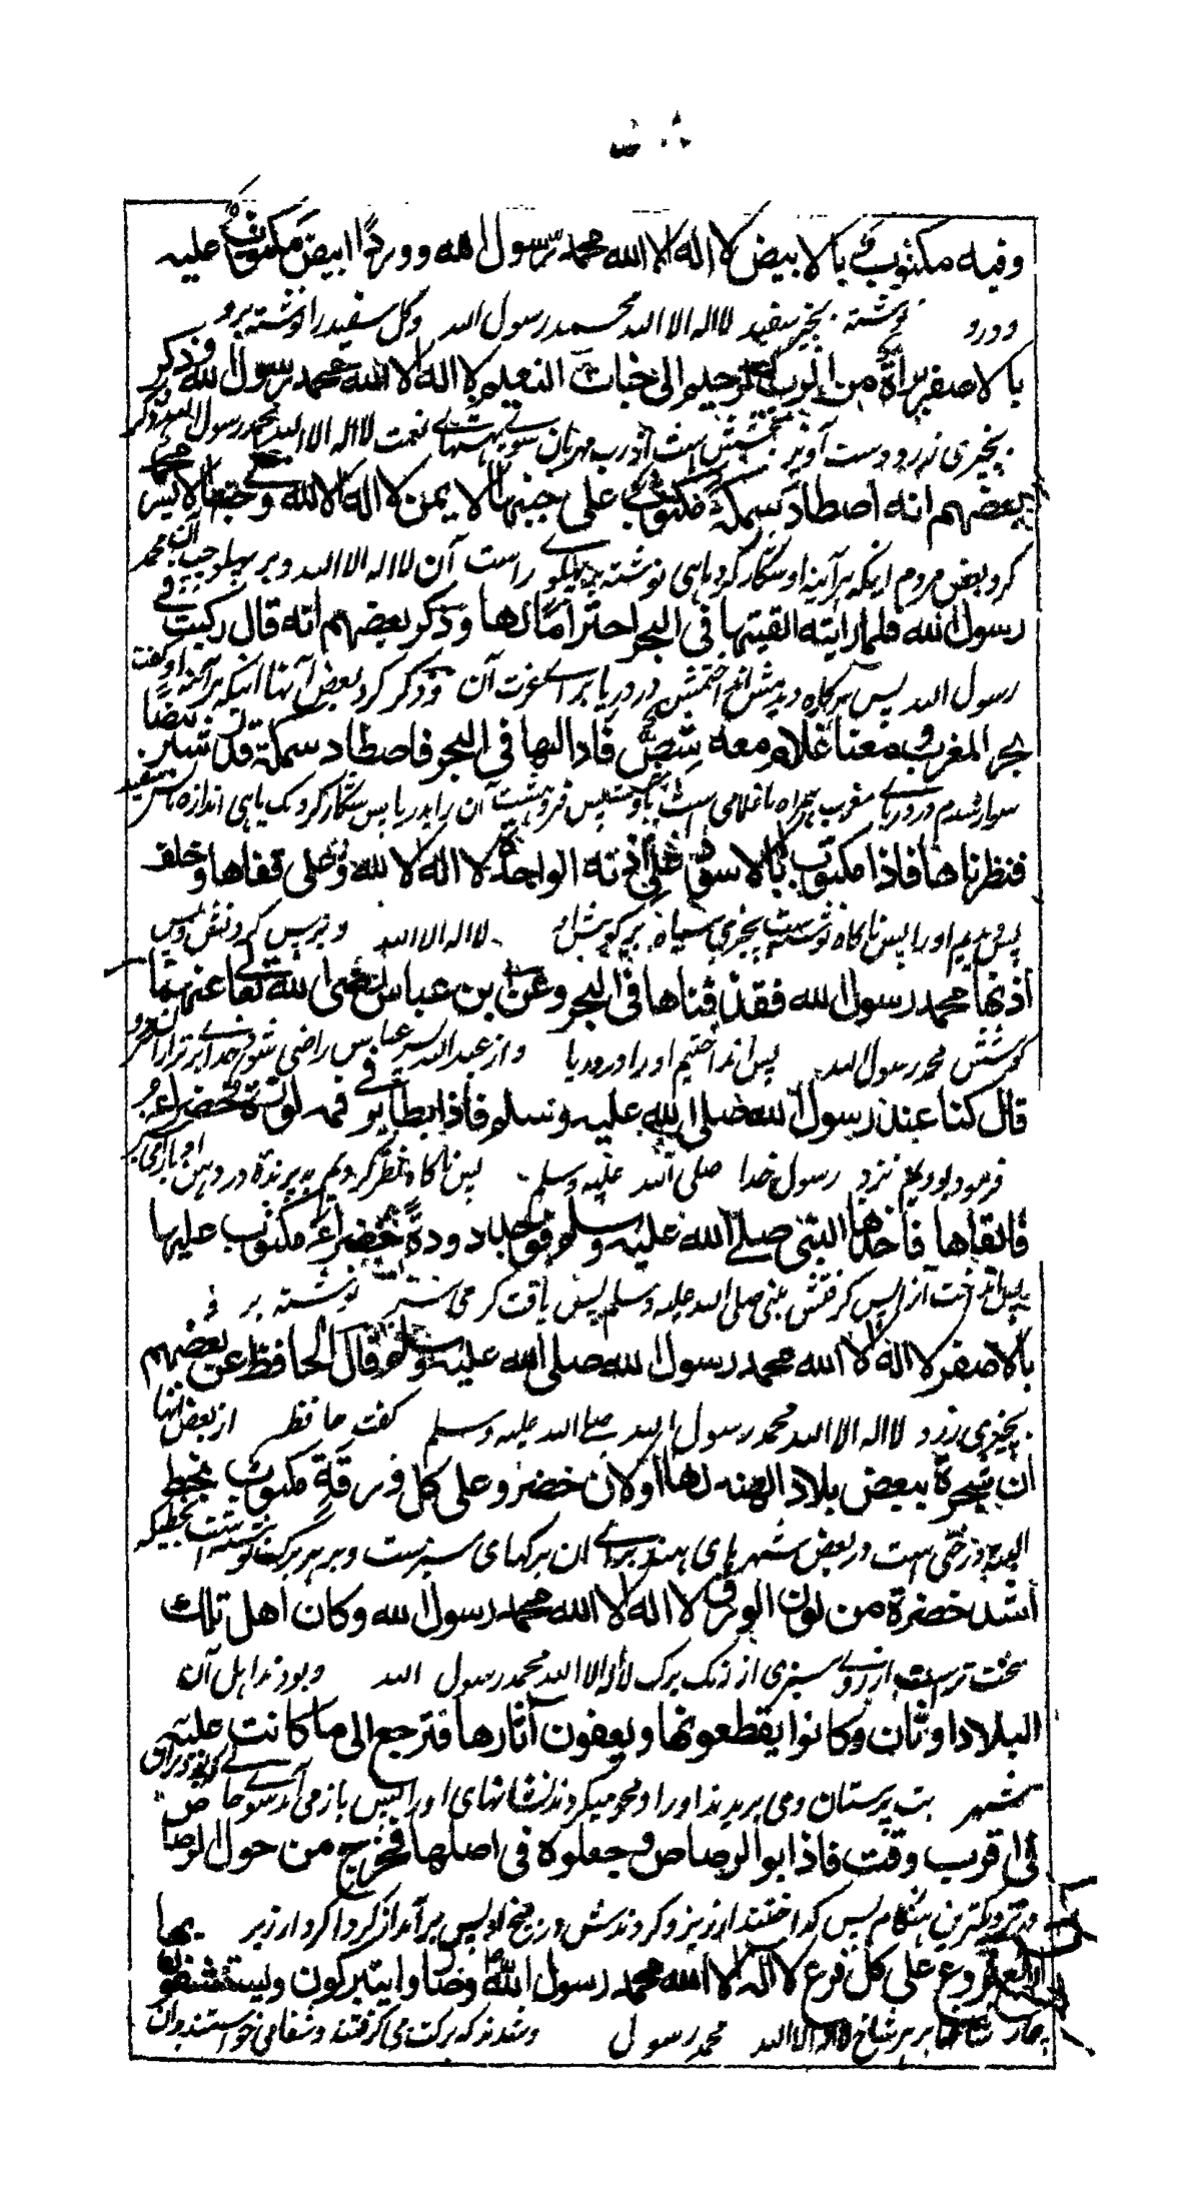 وفيه مكتوب بالابيض لا اله الا الله محمد رسول الله ووردا ابيض مكتوب عليه
ودرو نوشته بچیز سفید لا اله الا الله محمد رسول الله وگل سفید را نوشته برو
بالاصفر براة من الرب الرحيم الى جنات النعيم لا اله الا الله محمد رسول الله وذكر
بچیزی زرد دست آویز بخشش است از رب مهربان سوے بهشتهاے نعمت لا اله الا الله محمد رسول الله وذکر
بعضهم انه اصطاد سمكة مكتوب على جنبها الايمن لا اله الا الله وعلى جنبها الايسر محمد
کرد بعض مردم اینکه هرآینه او شکار کرد ماهی نوشته بر پهلوے راست آن لا اله الا الله وبر پهلو چپ آن محمد
رسول الله فلما رايته القيتها في البحر احتراما لها وذكر بعضهم انه قال ركبت في
رسول الله پس هرگاه دیدمش انداختمش در دریا براے عزت آن وذکر کرد بعض آنها اینکه هرآینه او گفت
بحر المغرب ومعنا غلام معه شص فادالها في البحر فاصطاد سمكة قدر شبر بيضا
سوار شدم در دریاے مغرب همراه ما غلامی است پس فروهشت آن را بدریا پس شکار کرد یک ماهی اندازه سفید
فنظرناها فاذا مكتوب بالاسود على اذنه الواحدة لا اله الا الله وعلى قفاها وخلف
پس دیدیم او را پس ناگاه نوشته است بچیزی سیاه بر گوشش لا اله الا الله وبر پس گردنش وپس
اذنها محمد رسول الله فقذفناها في البحر وعن ابن عباس رضى الله تعالى عنهما
گوشش محمد رسول الله پس انداختیم او را در دریا واز عبدالله پسر عباس راضی شود خداے برتر از آن هر دو
قال كنا عند رسول الله صلى الله عليه وسلم فاذا بطاير في فمه لوزة خضراء
فرمود بودیم نزد رسول خدا صلی الله علیه وسلم پس ناگاه نظر کردیم به پرنده در دهن او
فالقاها فاخذها النبي صلى الله عليه وسلم فوجد دودة خضراء مكتوب عليها
پس انداخت آن را پس گرفتش نبی صلی الله علیه وسلم پس یافت کرمی سبز نوشته بر
بالاصفر لا اله الا الله محمد رسول الله صلى الله عليه وسلم قال الحافظ عن بعضهم
بچیزی زرد لا اله الا الله محمد رسول الله صلی الله علیه وسلم گفت حافظ از بعض آنها
ان شجرة ببعض بلاد الهند لها اوراق خضر وعلى كل ورقة مكتوب بخط
درختی است در بعض شهرهای هند براے آن برگهای سبز است وبر هر برگ نوشته است بخطیکه
اشد خضرة من لون الورق لا اله الا الله محمد رسول الله وكان اهل تلك
سخت تر است از روے سبزی از رنگ برگ لا اله الا الله محمد رسول الله وبودند اهل آن
البلاد اوثان وكانوا يقطعونها ويعفون آثارها فترجع الى ما كانت عليه
شهر بت پرستان ومی بریدند او را ومحو میکردند نشانهای او را پس باز می آمد سوے
في اقرب وقت فاذابوا الرصاص وجعلوه في اصلها فخرج من حول الرصاص
در نزدیکترین هنگام پس گداختند ارزیز وکردندش در بیخ او پس برآمد از گرداگرد ارزیز
اربع فروع على كل فرع لا اله الا الله محمد رسول الله وصاروا يتبركون ويستشفون بها
چهار شاخها بر هر شاخ لا اله الا الله محمد رسول وشدند که برکت می گرفتند وشفا می خواستند بدان